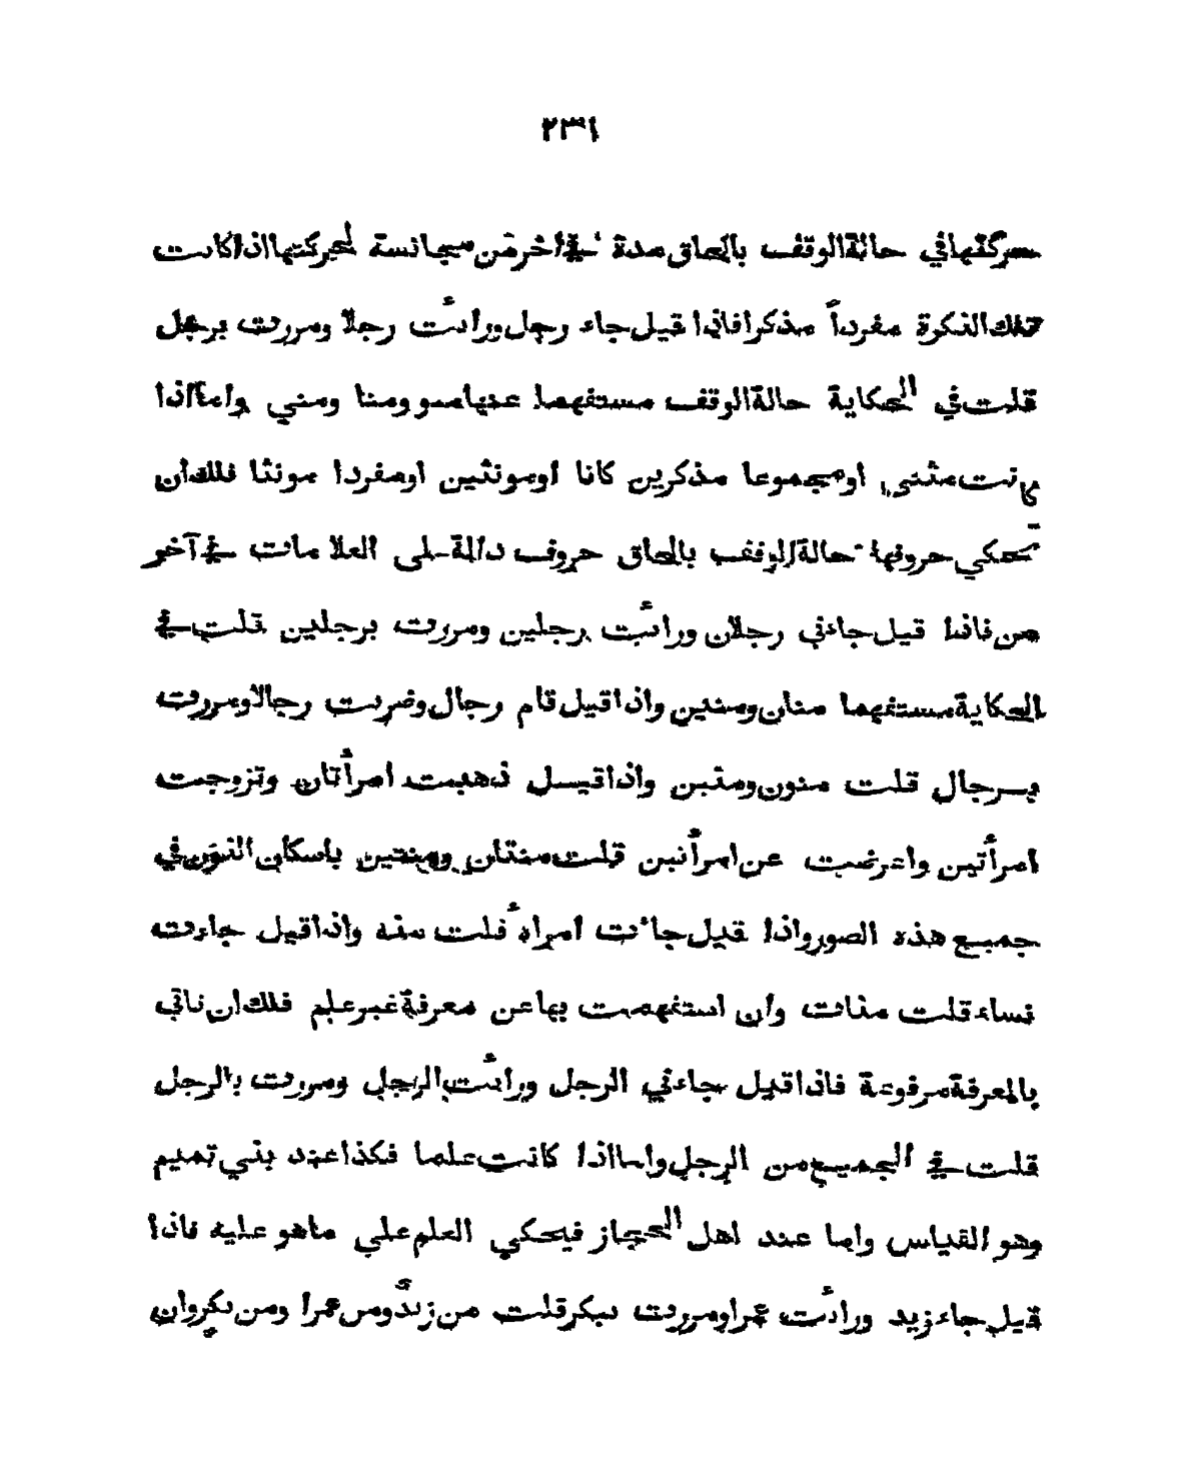 ٢٣١
حركتها في حالة الوقف بالحاق مدة في أخر من مجانسة لحركتها اذا كانت
تلك النكرة مفرداً مذكرا فاذا قيل جاء رجل ورائت رجلا ومررت برجل
قلت في الحكاية حالة الوقف مستفهما عنها منو ومنا ومني واما اذا
كانت مثني او مجموعا مذكرين كانا او مونثين او مفردا مونثا فلك أن
تحكي حروفها حالة الوقف بالحاق حروف دالة علي العلامات في آخر
من فاذا قيل جاءني رجلان ورائت رجلين ومررت برجلين قلت في
الحكاية مستفهما منان ومنين واذا قيل قام رجال وضربت رجالا ومررت
برجال قلت منون ومنين واذا قيل ذهبت امرأتان وتزوجت
امرأتين واعرضت عن امرأتين قلت منتان ومنتين باسكان النون في
جميع هذه الصور واذا قيل جائت امراة قلت منه واذا قيل جاءت
نساء قلت منات وان استفهمت بها عن معرفة غير علم فلك ان ناتي
بالمعرفة مرفوعة فاذا قيل جاءني الرجل ورائت الرجل ومررت بالرجل
قلت في الجميع من الرجل واما اذا كانت علما فكذا عند بني تميم
وهو القياس واما عند اهل الحجاز فيحكي العلم علي ما هو عليه فاذا
قيل جاء زيد ورائت عمرا ومررت ببكر قلت من زيدٌ ومن عمرا ومن بكر وان